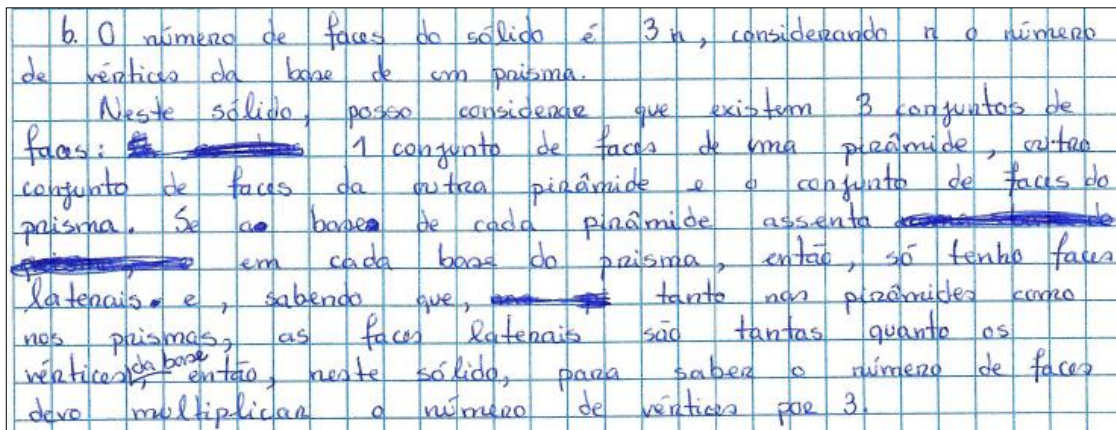 b. O número de faces do sólido é 3n, considerando n o número
de vértices da base de um prisma.
Neste sólido, posso considerar que existem 3 conjuntos de
faces: 1 conjunto de faces de uma pirâmide, outro
conjunto de faces da outra pirâmide e o conjunto de faces do
prisma. Se a base de cada pirâmide assenta
em cada base do prisma, então, só tenho faces
laterais e, sabendo que, tanto nas pirâmides como
nos prismas, as faces laterais são tantas quanto os
vértices da base, então, neste sólido, para saber o número de faces
devo multiplicar o número de vértices por 3.